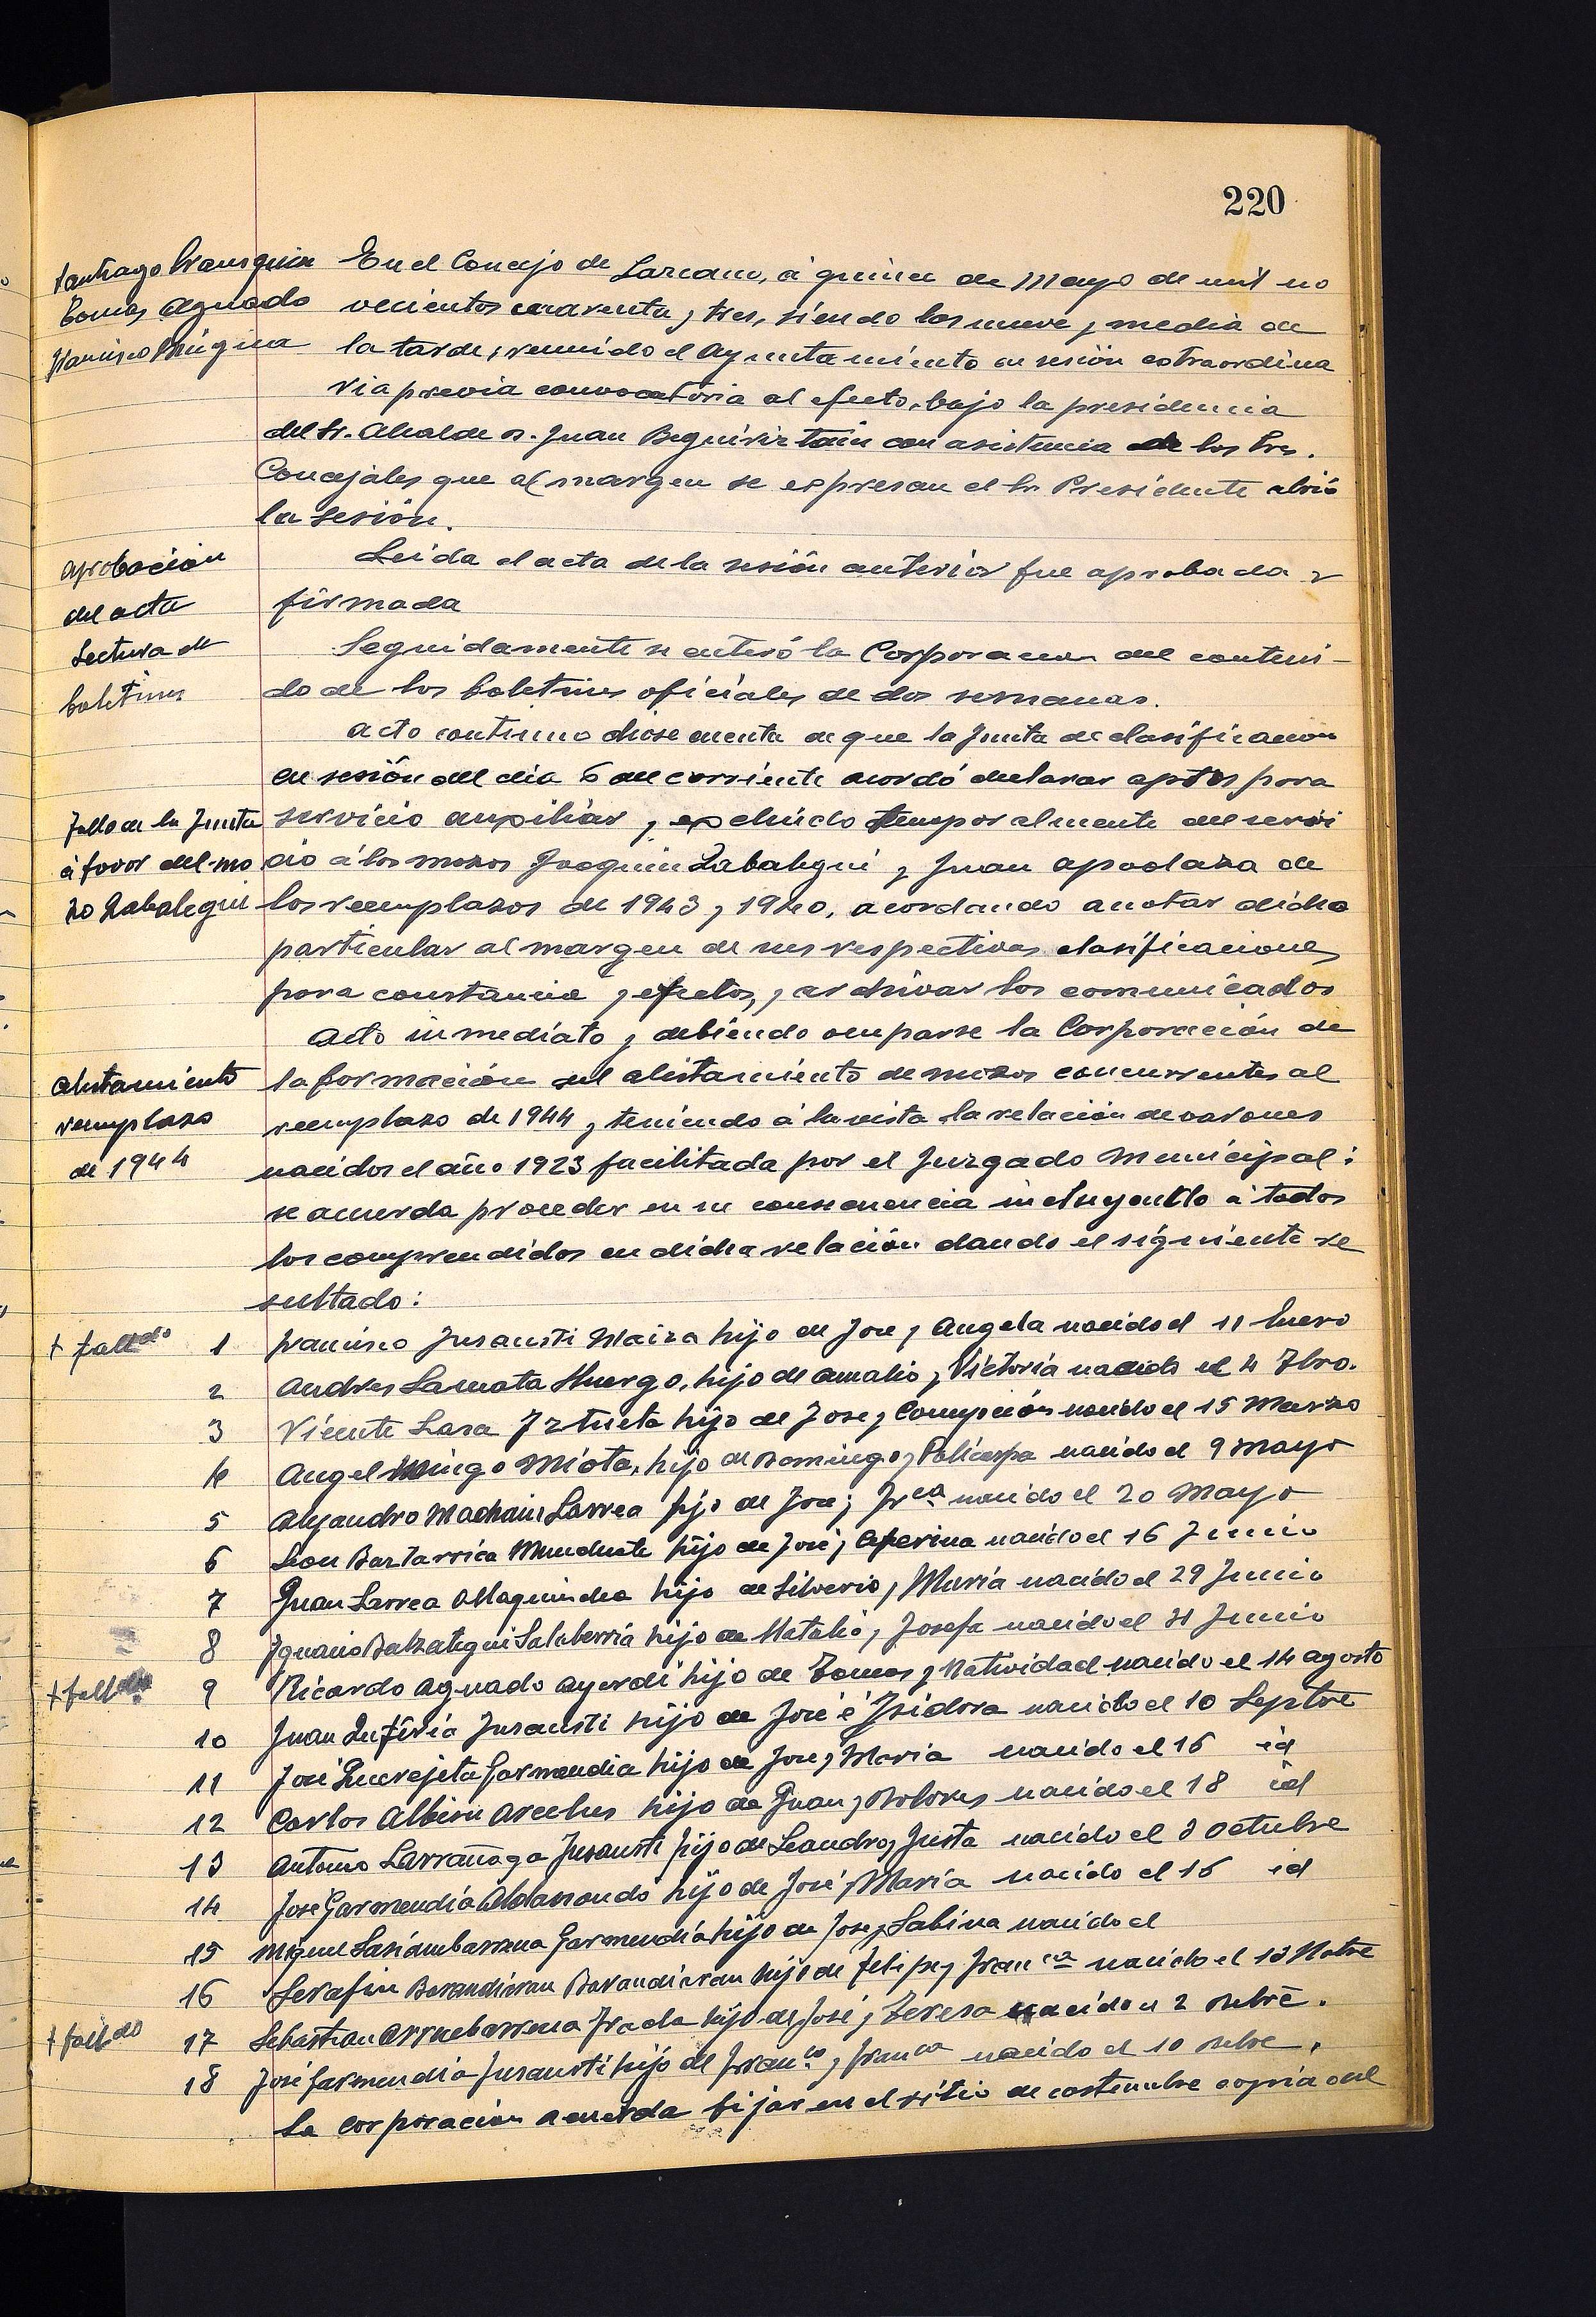 220
Santiago
Tomas Aguado
Francisco Múgica
En el Concejo de Lazcano, á quince de Mayo de mil no
vecientos cuarenta y tres, siendo las nueve y media de
la tarde, reunido el Ayuntamiento en sesión extraordina
ria previa convocatoria al efecto, bajo la presidencia
del Sr. Alcalde D. Juan Beguiristain con asistencia de los Sres.
Concejales que al margen se espresan el Sr. Presidente abrió
la sesión.
aprobación
del acta
Leida el acta de la sesión anterior fue aprobada y
firmada
Lectura de
boletines
Seguidamente se enteró la Corporacion del conteni-
do de los boletines oficiales de dos semanas.
Acto continuo diose cuenta de que la Junta de clasificacion
en sesión del dia 6 del corriente acordó declarar aptos para
Fallo de la Junta
á favor del mo
zo Zabalegui
servicio auxiliar y excluido temporalmente del servi
cio á los mozos Joaquin Zabalegui y Juan Apodaza de
los reemplazos de 1943 y 1940, acordando anotar dicho
particular al margen de sus respectivas clasificaciones
para constancia y efectos, y archivar los comunicados
Acto inmediato y debiendo ocuparse la Corporación de
alistamiento
reemplazo
de 1944
la formación del alistamiento de mozos concurrentes al
reemplazo de 1944 y teniendo á la vista la relación de varones
nacidos el año 1923 facilitada por el Juzgado Municipal:
se acuerda proceder en su consecuencia incluyendo á todos
los comprendidos en dicha relación dando el siguiente re
sultado:
+ fallº 1 Francisco Insausti Maiza hijo de Jose y Angela nacido el 11 Enero
2 Andres Lamata Huergo, hijo de Amalio y Victoria nacido el 4 Fbro.
3 Vicente Lasa Iztueta hijo de Jose y Concepción nacido el 15 Marzo
4 Angel Mingo Miota, hijo de Domingo y Policarpa nacido el 9 Mayo
5 Alejandro Machain Larrea hijo de Jose y Frca nacido el 20 Mayo
6 Leon Baztarrica Munduate hijo de José y Ceferina nacido el 16 Junio
7 Juan Larrea hijo de Silverio y Maria nacido el 29 Junio
8 Ignacio Balzategui Salaberria hijo de Natalio y Josefa nacido el Junio
+ falldo 9 Ricardo Aguado Ayerdi hijo de Tomas y Natividad nacido el 14 agosto
10 Juan Insausti hijo de José é Isidora nacido el 10 Septbre
11 José Garmendia hijo de Jose y Maria nacido el 16 id
12 Carlos Albisu hijo de Juan y Dolores nacido el 18 id
13 Antonio Larrañaga Insausti hijo de Leandro y Justa nacido el 3 Octubre
14 José Garmendia Aldasoro hijo de José y Maria nacido el 16 id
15 Miguel Lasa Garmendia hijo de Jose y Sabina nacido el
16 Serafin Barandiaran Barandiaran hijo de Felipe y Franca nacido el 13 Nobre
+ falldo 17 Sebastian Arruebarrena hijo de José y Teresa nacido el 2 Dbre.
18 José Garmendia Insausti hijo de Franco y Franca nacido el 10 Dbre.
La Corporacion acuerda fijar en el sitio de costumbre copia del